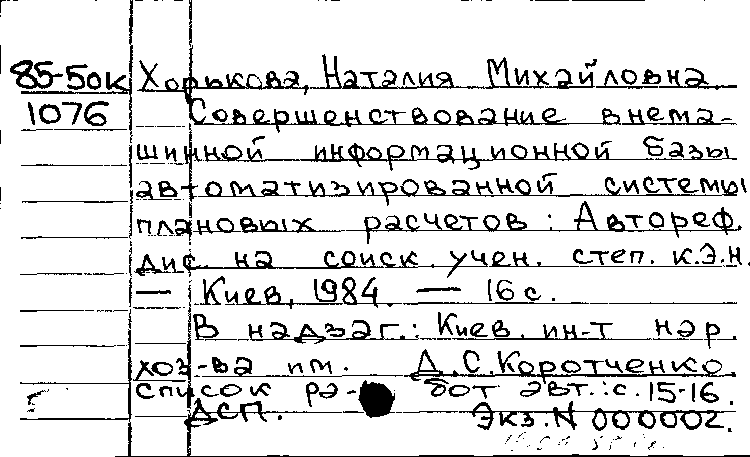 85-5ок Хорькова, Наталия Михайловна.
1076 Совершенствование внема-
шинной информационной базы
автоматизированной системы
плановых расчетов : Автореф.
дис. на соиск. учен. степ. к.э.н.
— Киев, 1984. — 16 с.
В надзаг.: Киев. ин-т нар.
хоз-ва им. Д.С.Коротченко.
Список ра- бот авт.: с. 15-16.
ДСП. Экз. N 000002.